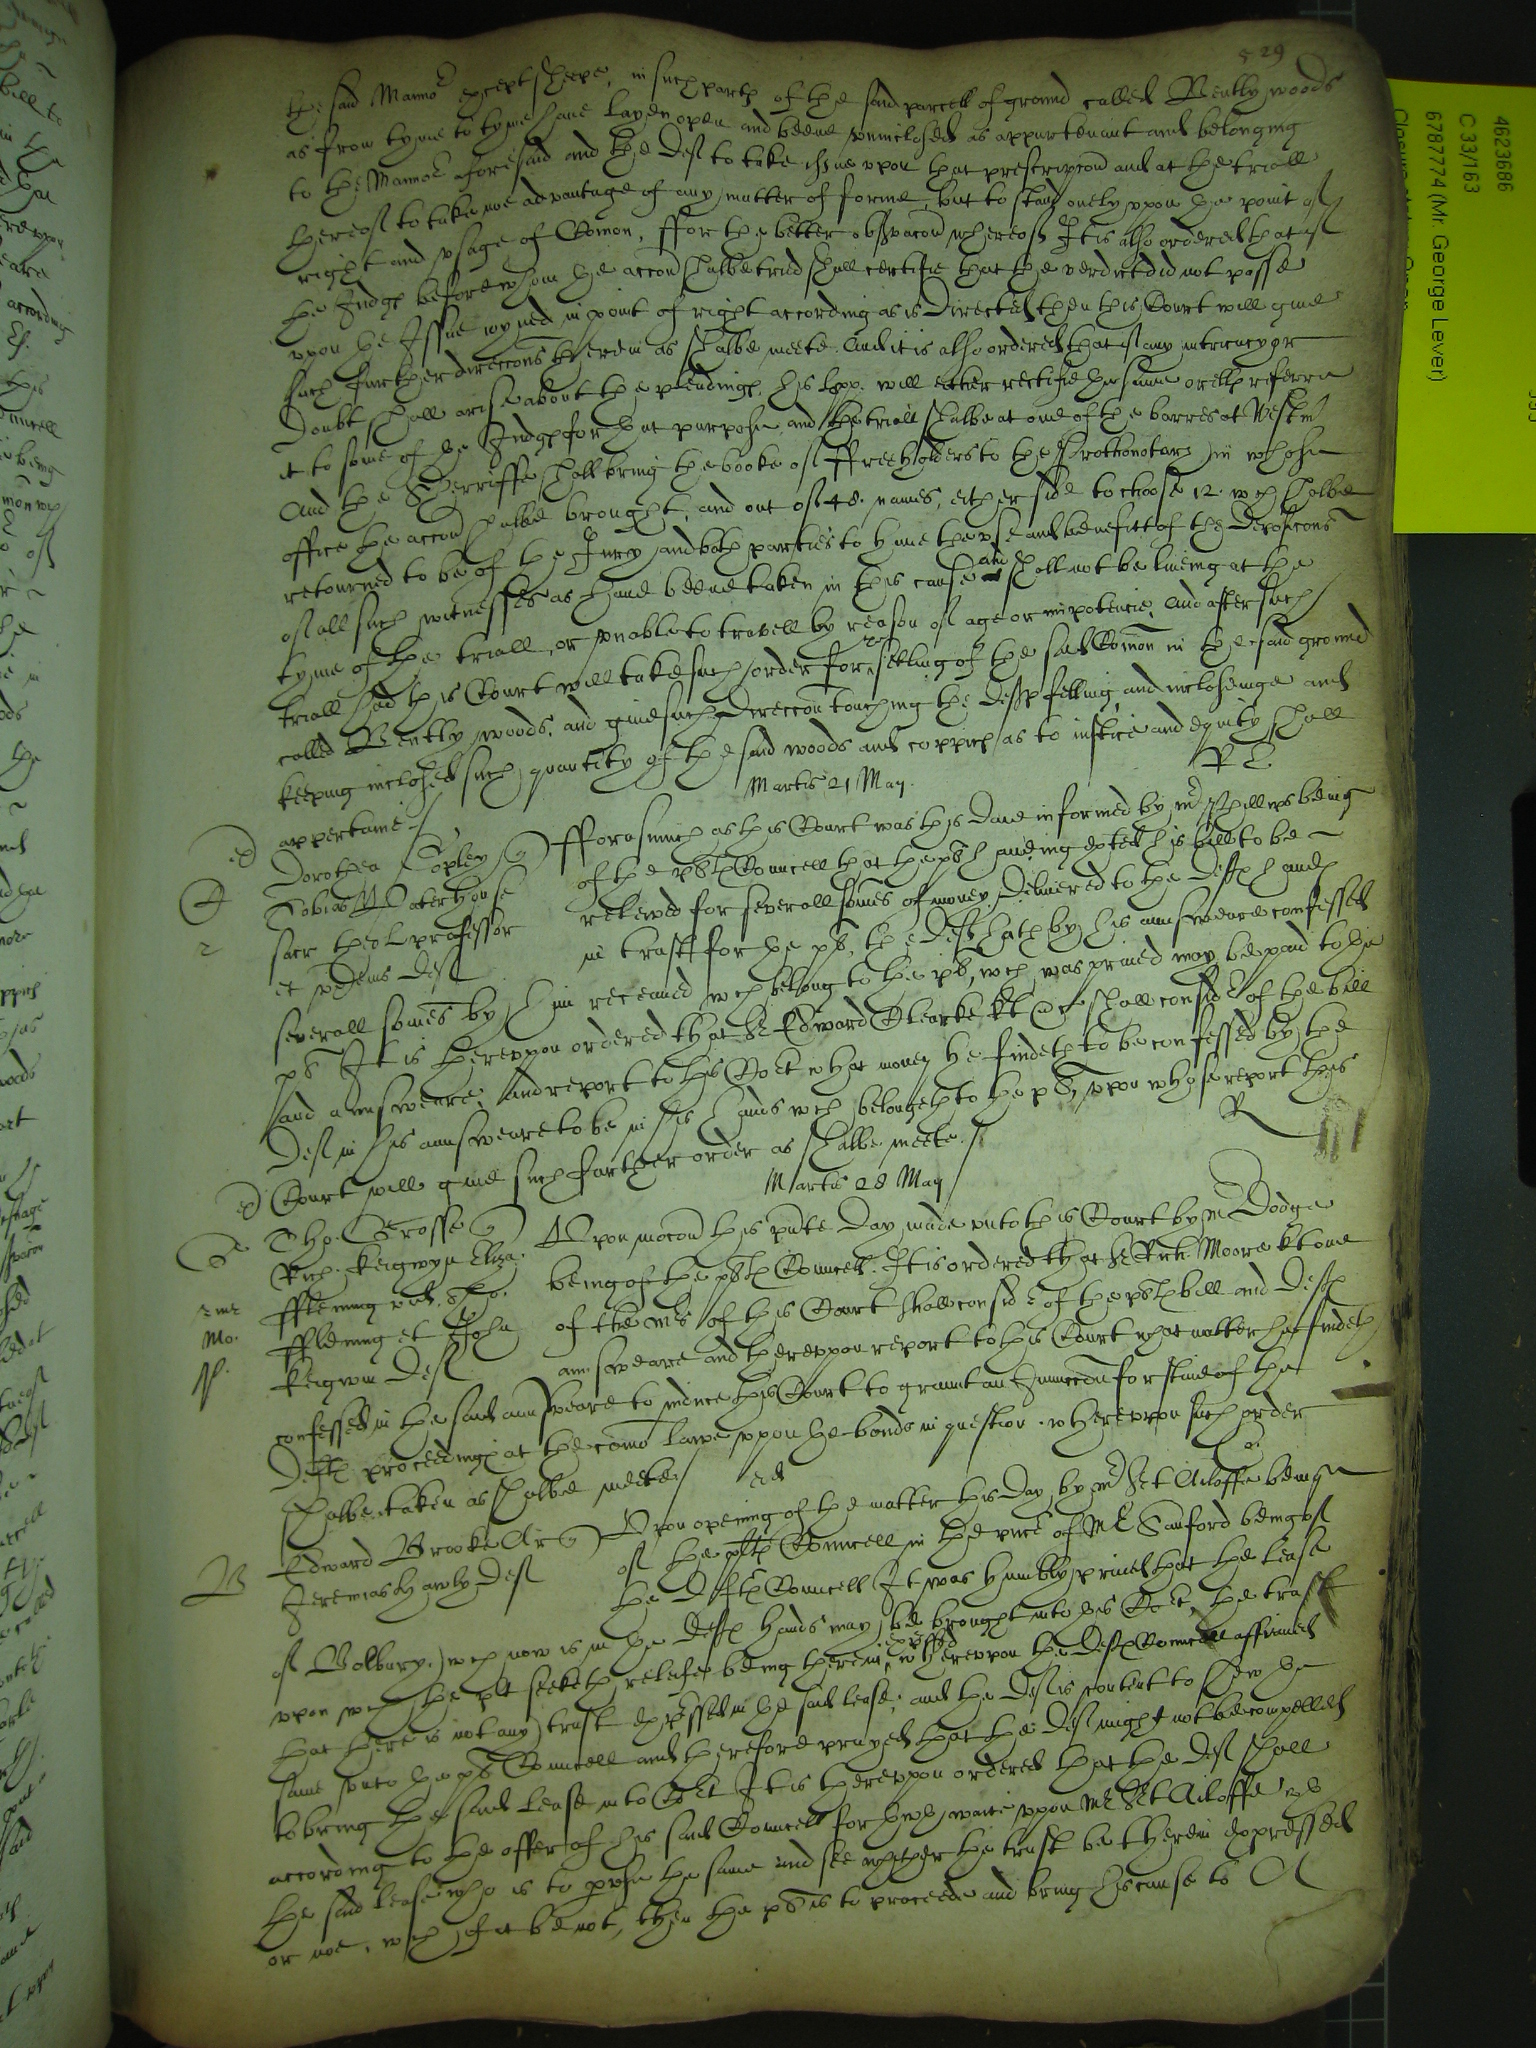 529
the said Mannor except sheepe, in such parts of the said parcell of ground called Bently woods
as from tyme to tyme have layen open and beene uninclosed as appurtenant and belonging
to the Mannor aforesaid and the Def to take issue upon that prescripcon and at the triall
thereof to take noe advantage of any matter of forme, but to stand onely uppon the point of
right and usage of Comon, ffor the better observacon whereof It is also ordered that if
the Judge before whom the accon shalbe tried shall certifie that the verdict did not passe
upon the Issue ioyned in point of right according as is directed then this Court will give
such further direccons therein as shalbe meete. And it is also ordered that if any intricacy or
doubt shall arise about the pleadings, his Lopp. will either rectifie the same or ells referre
it to some of the Judges for that purpose and the triall shalbe at one of the barres at Westm
And the Sherriffe shall bring the booke of ffreeholders to the Prothonotary in whose
office the accon shalbe brought, and out of 48. names, either side to choose 12. wch shalbe
retourned to be of the Jurey and both parties to have the use and benefitt of the deposicons
of all such witnesses as have beene taken in this cause and shall not be liveing at the
tyme of the triall, or unable to travell by reason of age or impotencie, And after such
triall had this Court will take such order for setling of the said Comon in the said ground
called Bently woods, and give such direccon touching the Defs felling and inclosinge and
keeping inclosed such quantity of the said woods and coppices as to iustice and equity shall
appertaine
Martis 21 May.
Dorothea Copley
Tobias Waterhouse
sacr theol professor
et Def
fforasmuch as this Court was this Daie informed by mr Phillipps being
of the pls Councell that the pl having exhited his bill to be
releived for severall somes of money delivered to the Defs hands
in trust for the pl, the Def hath by his aunsweare confessed
severall somes by him received wch belong to the pl, wch was praied may be paid to the
pl It is hereuppon ordered that Sr Edward Clearke kt shall consider of the bill
and aunsweare, and report to this Cort what money he findeth to be confessed by the
Def in his aunsweare to be in his hands wch belongeth to the pl, upon whose report this
Court will give such further order as shalbe meete.
Martis 28 May
Tho. Grosse
Rich. Keigwyn Eliza.
ffleming vid. Tho.
ffleming et John
Keigwin Def
Upon mocon this pnte Day made unto this Court by mr Dodge
being of the pls Councell. It is ordered that Sr Rich. Moore kt one
of the mrs of this Court shall consider of the pls bill and Defs
aunsweare and thereuppon report to this Court what matter he findeth
confessed in the said aunsweare to induce this Court to graunt an Iniunccon for staie of the
Defs proceedings at the comon lawe uppon the bonds in question. whereuppon such order
shalbe taken as shalbe meete
Edward Brooke Ar
Jeremias Hawly Def
Upon opening of the matter this Day by mr Sert Ailoffe being
of the pls Councell in the pnce of Mr Sanford being of
the Defts Councell It was humbly praied that the Lease
of Colbury, wch now is in the Defs hands may be brought into this Cort, the trust
upon wch the pl seeketh releife being therein expressed, whereuppon the Defs Councell affirmed
that there is not any trust expressed in the said lease, and the Def is content to shew the
same unto the pls Councell and therefore prayed that the Def might not be compelled
to bring the said Lease into Cort It is thereuppon ordered that the Def shall
according to the offer of his said Councell forthwth waite uppon Mr Sert Ailoffe wth
the said lease who is to peruse the same and see whether the trust be therein expressed
or noe, wch if it be not, then the pl is to proceede and bring his cause to
4623686
C 33/163
6787774 (Mr. George Lever)